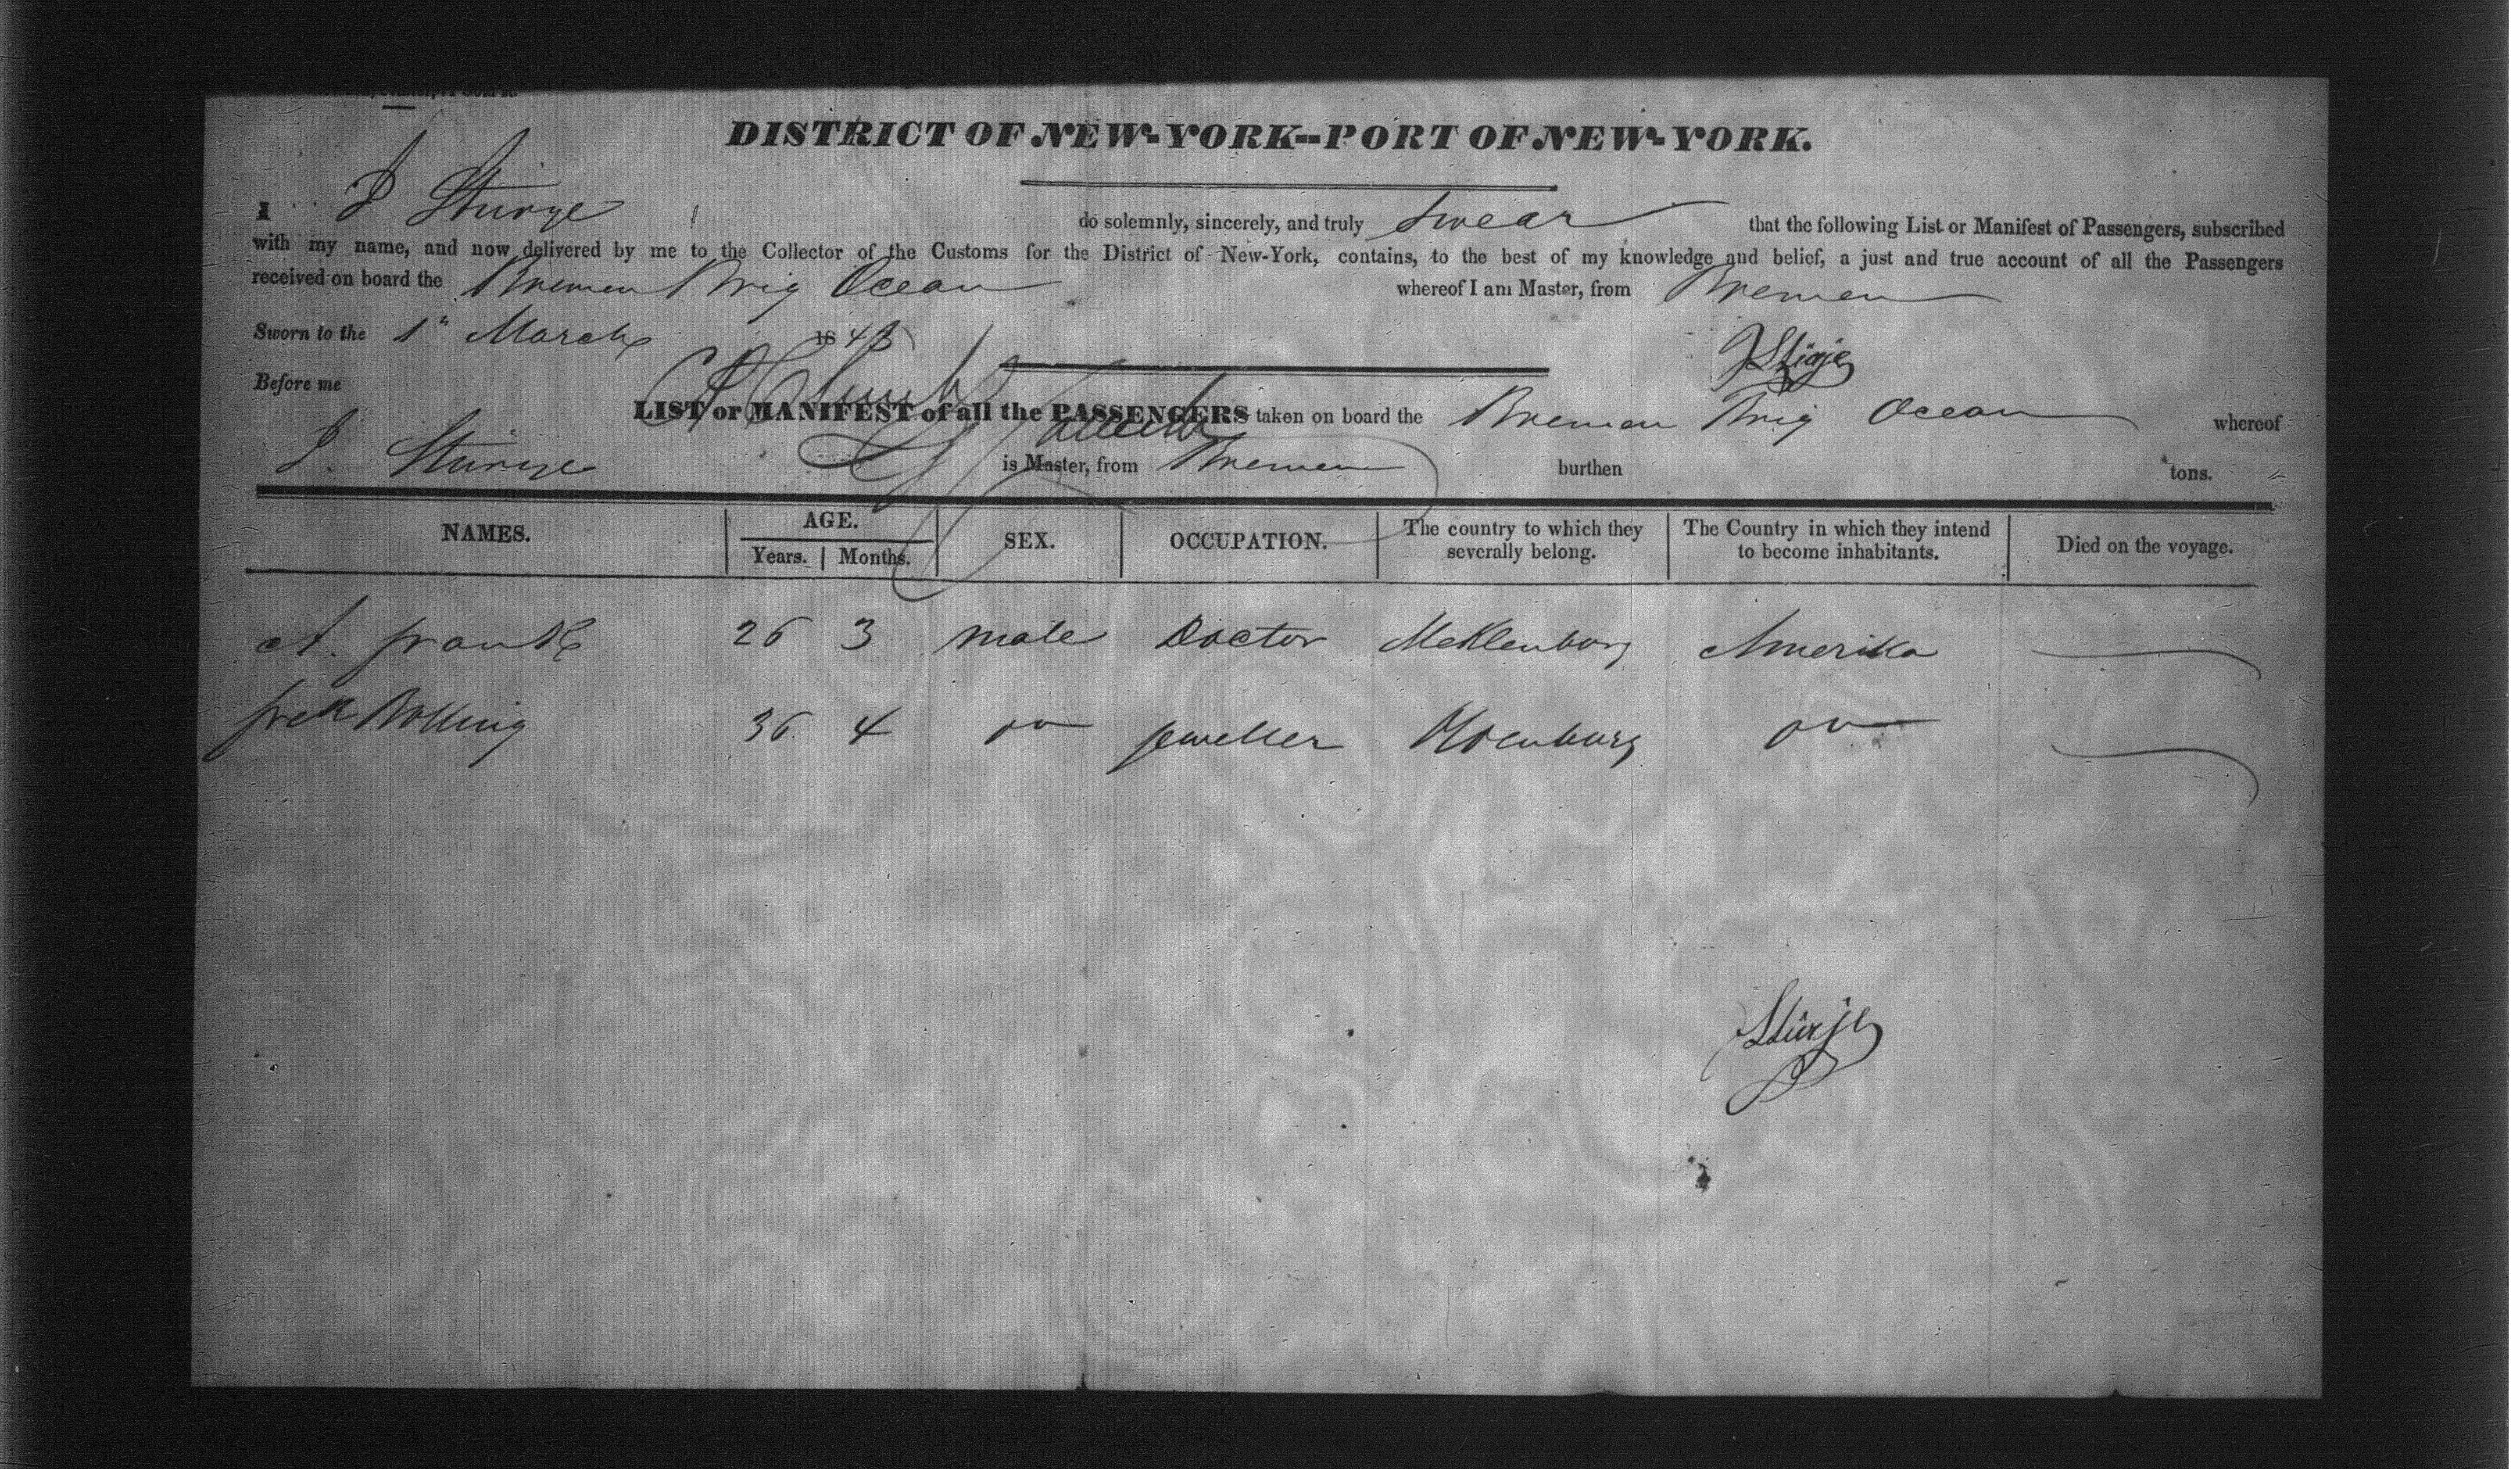 DISTRICT OF NEW-YORK--PORT OF NEW-YORK.
I J Stürje do solemnly, sincerely, and truly swear that the following List or Manifest of Passengers, subscribed
with my name, and now delivered by me to the Collector of the Customs for the District of New-York, contains, to the best of my knowledge and belief, a just and true account of all the Passengers
received on board the Bremen Brig Ocean whereof I am Master, from Bremen
Sworn to the 1" March 184
J Stürje
Before me
LIST or MANIFEST of all the PASSENGERS taken on board the Bremen Brig Ocean whereof
J. Stürje is Master, from Bremen burthen tons.
NAMES. AGE. SEX. OCCUPATION. The country to which they severally belong. The Country in which they intend to become inhabitants. Died on the voyage.
Years. Months.
A. Frank 26 3 male Doctor Meklenburg Amerika
Bolling 36 4 jeweller Oldenburg
Stürje